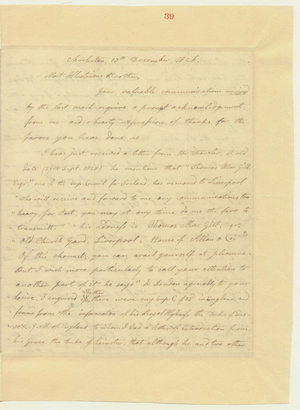 39
Charleston, 18th December, 1826.
Most Illustrious Brother,
Your valuable communication
by the last mail requires a prompt acknowledgement
from me and a hearty expression of thanks for the
favors you have done us
I have just received a letter from
date (28th Sept. 1826) he mentions that "Thomas Mac Gill
Esqr. one of the for Ireland, has removed to Liverpool
who will receive and forward to me any communications too
heavy for Post. you may at any time in one the port to
transmit." His Address is Thomas Mac Gill Esqr.
Old Church Yard, Liverpool. House of Allan & Co
By this channel you can avail yourself at pleasure
But I wish more particularly to call your attention to
another part of it. he says "In London agreeably to your
desire, I inquired further there were any in England, and
found from the information of his Royal Highness the Duke of
of England to whom I had a letter of introduction from
his Grace the Duke of Leinster that although he and two others